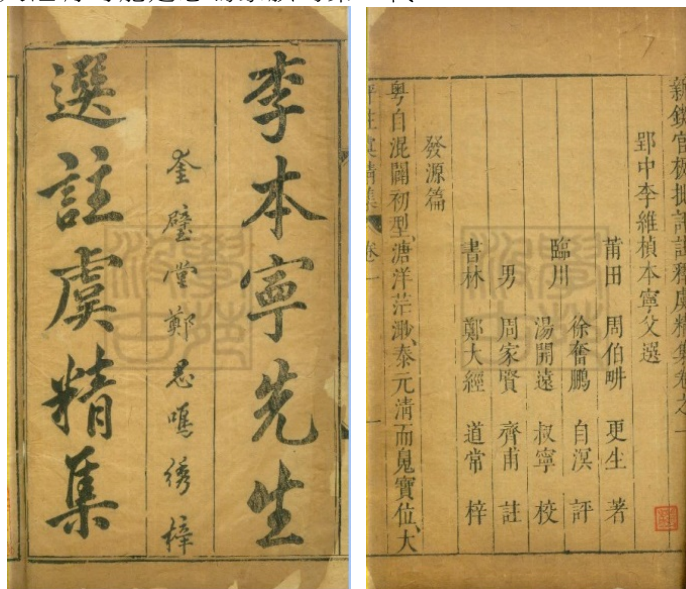 李本寧先生
奎璧堂鄭思鳴綉梓
選註虞精集
新鐫官板批評註釋虞精集卷之一
郢中李維楨本寧父選
莆田 周伯畊 更生 著
徐奮鵬 自溟 評
臨川
湯開遠 叔寧 校
男 周家賢 齊甫 註
書林 鄭大經 道常 梓
發源篇
粤自混闢初型溏洋茫瀜泰元清而皃寶位大